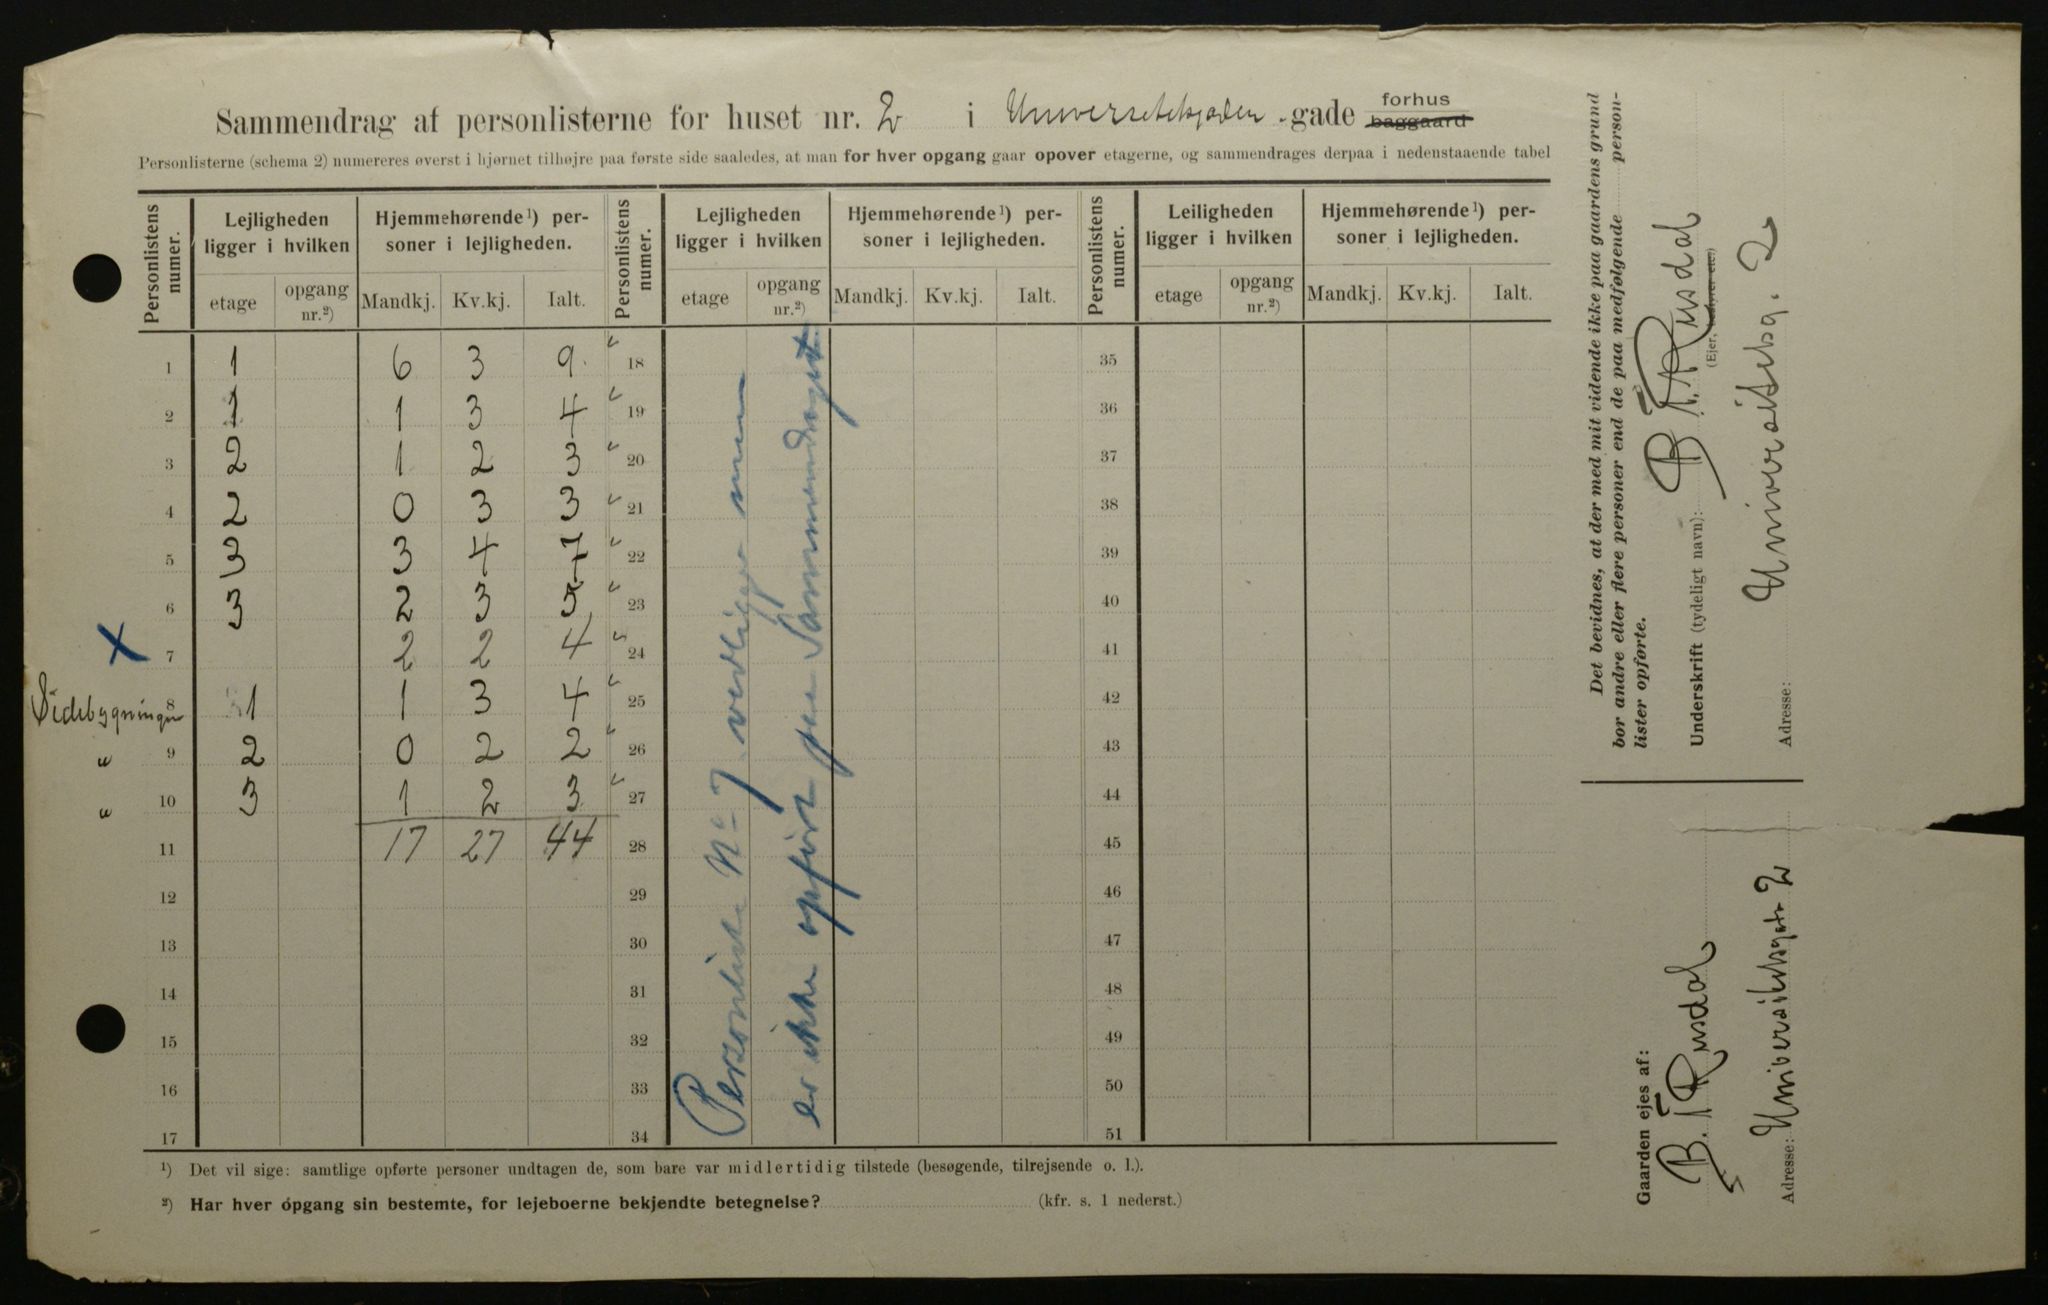 Sammendrag af personlisterne for huset nr. 2 i Universitetsgaden -gade forhus baggaard
Personlisterne (schema 2) numereres øverst i hjørnet tilhøjre paa første side saaledes, at man for hver opgang gaar opover etagerne, og sammendrages derpaa i nedenstaaende tabel
Personlistens numer. Lejligheden ligger i hvilken Hjemmehørende¹) personer i lejligheden. Personlistens numer. Lejligheden ligger i hvilken Hjemmehørende¹) personer i lejligheden. Personlistens numer. Leiligheden ligger i hvilken Hjemmehørende¹) personer i lejligheden.
etage opgang nr.²) Mandkj. Kv.kj. Ialt. etage opgang nr.²) Mandkj. Kv.kj. Ialt. etage opgang nr.²) Mandkj. Kv.kj. Ialt.
1 1 6 3 9 18 35
2 1 1 3 4 19 36
3 2 1 2 3 20 37
4 2 0 3 3 21 38
5 3 3 4 7 22 39
6 3 2 3 5 23 40
7 2 2 4 24 41
Sidebygningen 8 1 1 3 4 25 42
" 9 2 0 2 2 26 43
" 10 3 1 2 3 27 44
11 17 27 44 28 45
12 29 46
13 30 47
14 31 48
15 32 49
16 33 50
17 34 51
Personliste No 7 vedligger men
er ikke opført paa Sammendraget
¹) Det vil sige: samtlige opførte personer undtagen de, som bare var midlertidig tilstede (besøgende, tilrejsende o. l.).
²) Har hver opgang sin bestemte, for lejeboerne bekjendte betegnelse? (kfr. s. 1 nederst.)
Det bevidnes, at der med mit vidende ikke paa gaardens grund
bor andre eller flere personer end de paa medfølgende person-
lister opførte.
Underskrift (tydeligt navn): B. T. Rusdal
(Ejer, bestyrer etc.)
Adresse: Universitetsg. 2
Gaarden ejes af:
B. T. Rusdal
Adresse: Universitetsgata 2